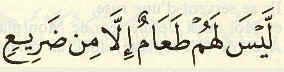 لَّيْسَ لَهُمْ طَعَامٌ إِلَّا مِن ضَرِيعٍ